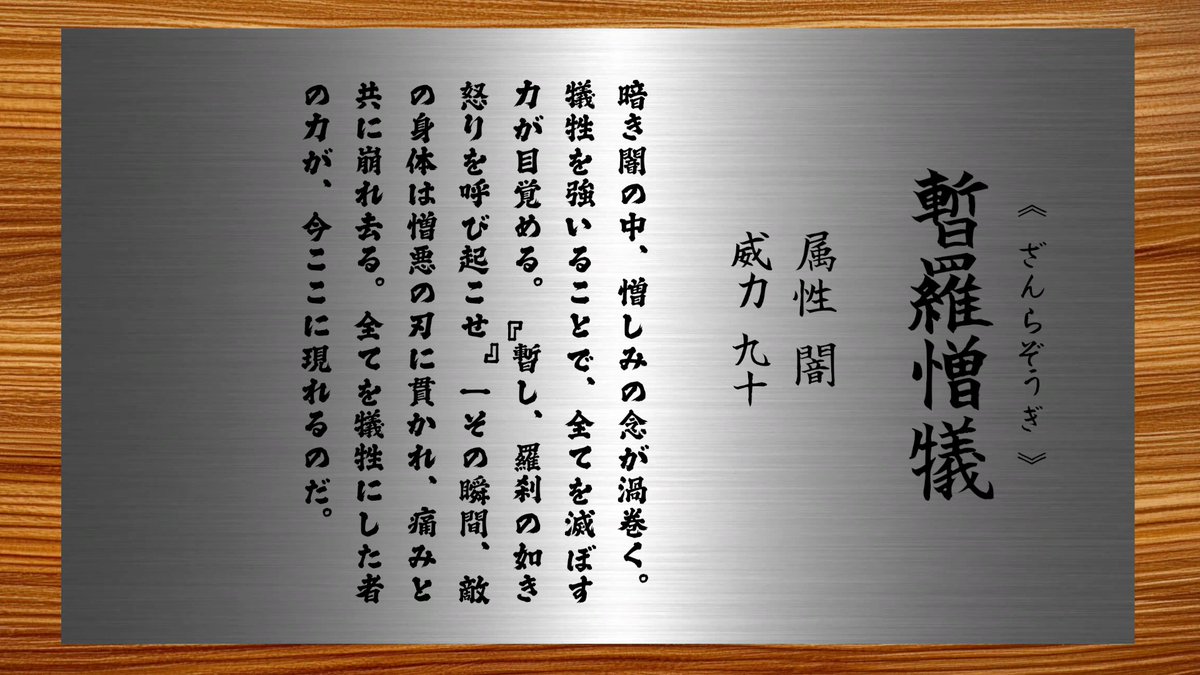 《ざんらぞうぎ》
暫羅憎犠
属性 闇
威力 九十
暗き闇の中、憎しみの念が渦巻く。
犠牲を強いることで、全てを滅ぼす
力が目覚める。『暫し、羅刹の如き
怒りを呼び起こせ』一その瞬間、敵
の身体は憎悪の刃に貫かれ、痛みと
共に崩れ去る。全てを犠牲にした者
の力が、今ここに現れるのだ。